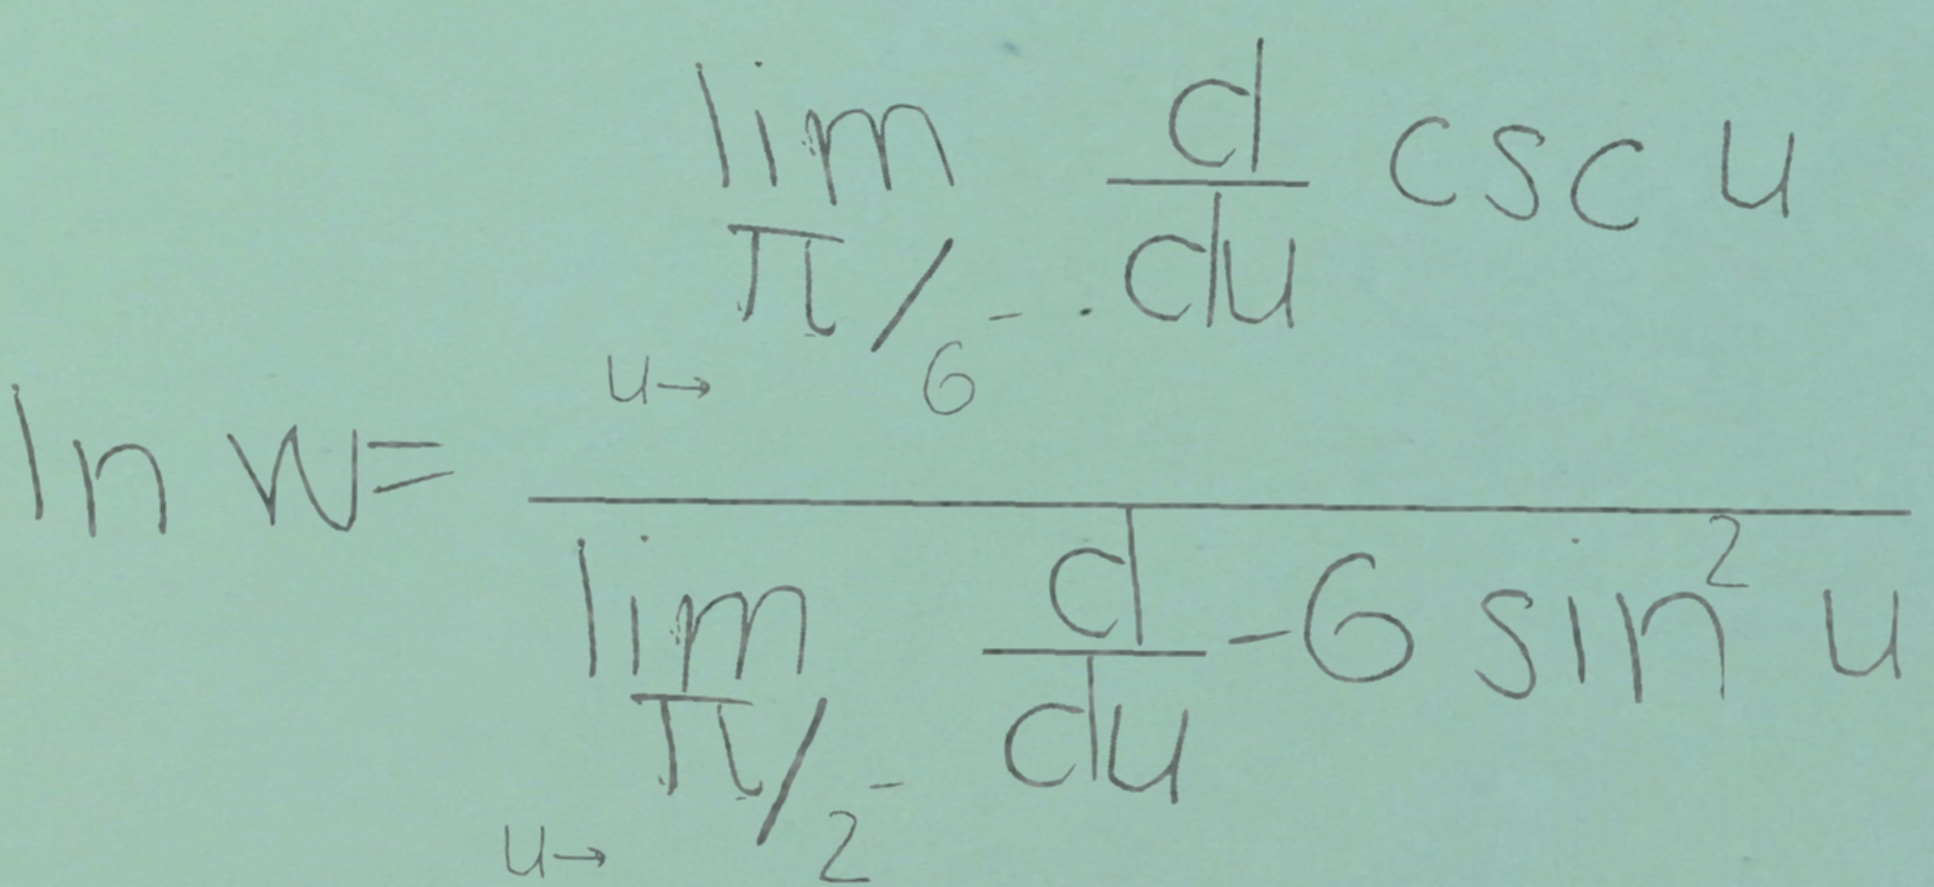 ln w = \frac{\lim_{u \to \pi/6^-} \frac{d}{du} \csc u}{\lim_{u \to \pi/2^-} \frac{d}{du} -6 \sin^2 u}